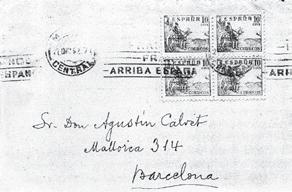 ESPAÑA 10 ESPAÑA 10
CORREOS CORREOS
ESPAÑA 10 ESPAÑA 10
CORREOS CORREOS
CENTRAL
FR
ARRIBA ESPAÑA
Sr. Don Agustín Calvet
Mallorca 314
Barcelona